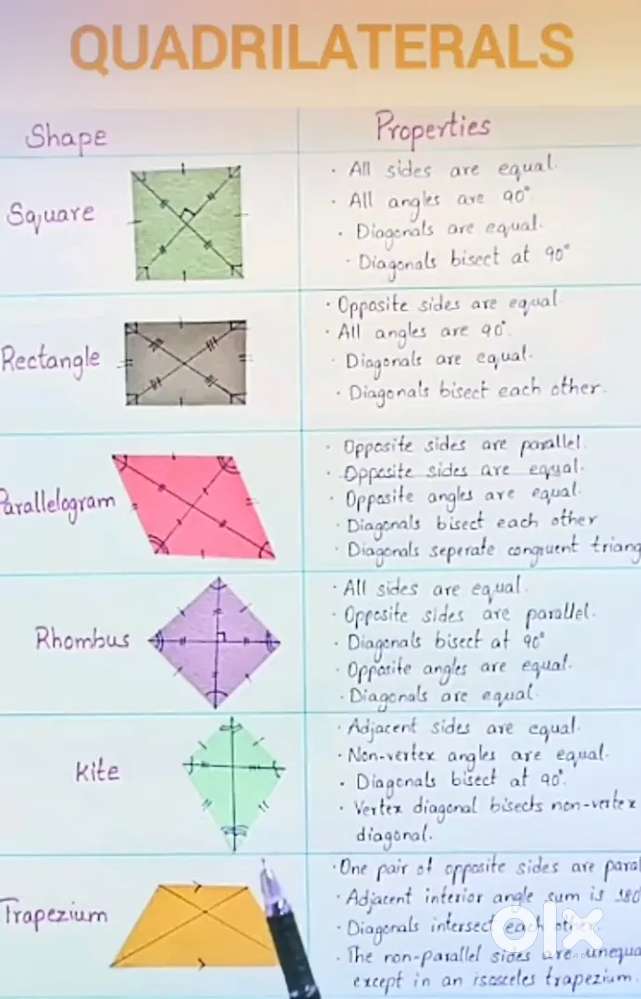 QUADRILATERALS
Shape
Properties
Square
· All sides are equal.
· All angles are 90°
· Diagonals are equal.
· Diagonals bisect at 90°
Rectangle
· Opposite sides are equal
· All angles are 90°.
· Diagonals are equal.
· Diagonals bisect each other.
Parallelogram
· Opposite sides are parallel.
· Opposite sides are equal.
· Opposite angles are equal.
· Diagonals bisect each other
· Diagonals seperate congruent triang
Rhombus
· All sides are equal.
· Opposite sides are parallel.
· Diagonals bisect at 90°
· Opposite angles are equal.
· Diagonals are equal
Kite
· Adjacent sides are equal.
· Non-vertex angles are equal.
· Diagonals bisect at 90°.
· Vertex diagonal bisects non-vertex
diagonal.
Trapezium
· One pair of opposite sides are paral
· Adjacent interior angle sum is 180°
· Diagonals intersect each other.
· The non-parallel sides are unequa
except in an isosceles trapezium.
olx